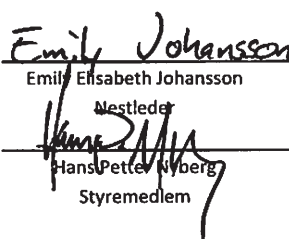 Emily Johansson
Emily Elisabeth Johansson
Nestleder
Hans Petter Nyberg
Styremedlem